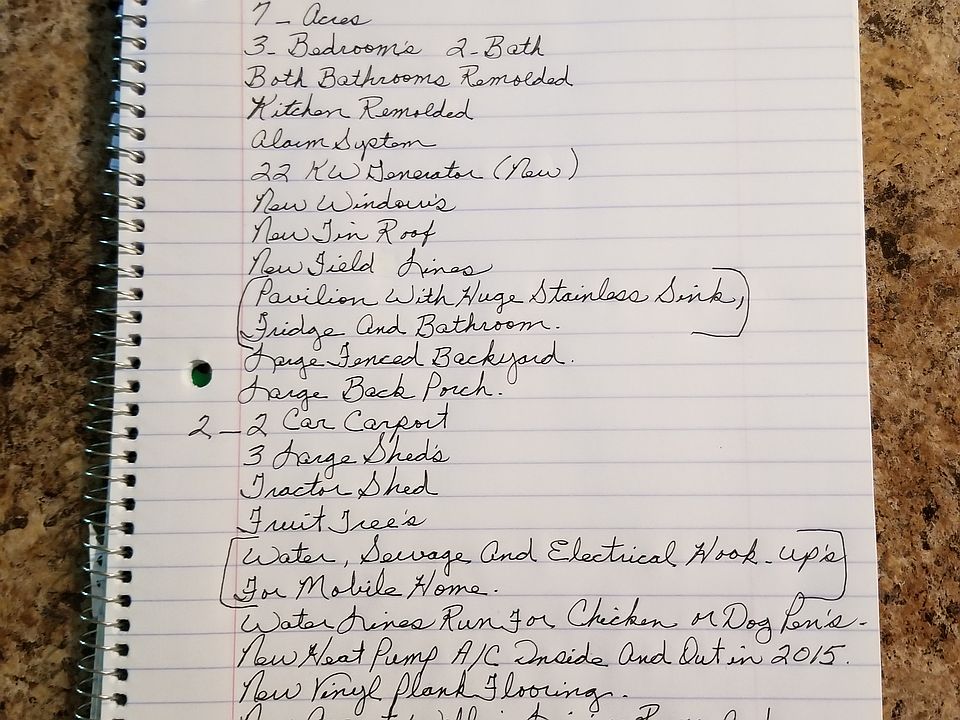 7 - Acres
3 - Bedroom's 2 - Bath
Both Bathrooms Remolded
Kitchen Remolded
Alarm System
22 KW Generator (New)
New Window's
New Tin Roof
New Field Lines
Pavilion With Huge Stainless Sink,
Fridge And Bathroom.
Large Fenced Backyard.
Large Back Porch.
2 - 2 Car Carport
3 Large Shed's
Tractor Shed
Fruit Tree's
Water, Sewage And Electrical Hook-up's
For Mobile Home.
Water Lines Run For Chicken or Dog Pen's -
New Heat Pump A/C Inside And Out in 2015.
New Vinyl Plank Flooring.